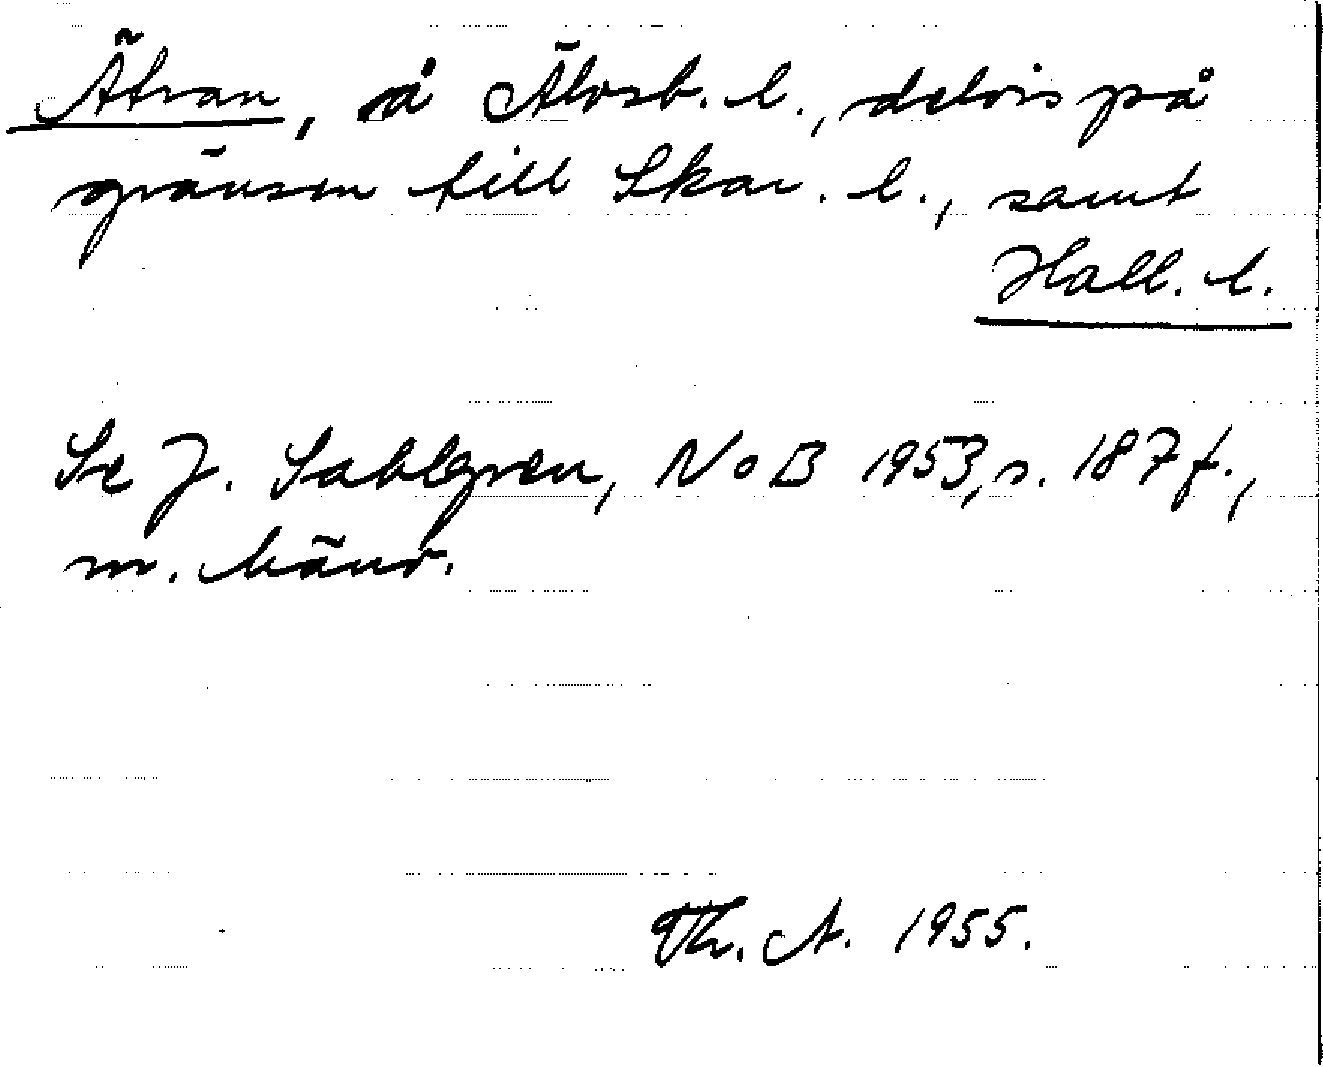 Ätran, å Älvsb. l., delvis på
gränsen till Skar. l., samt
Hall. l.
Se J. Sahlgren, NoB 1953, s. 187 f.,
m. hänv.
Th. A. 1955.